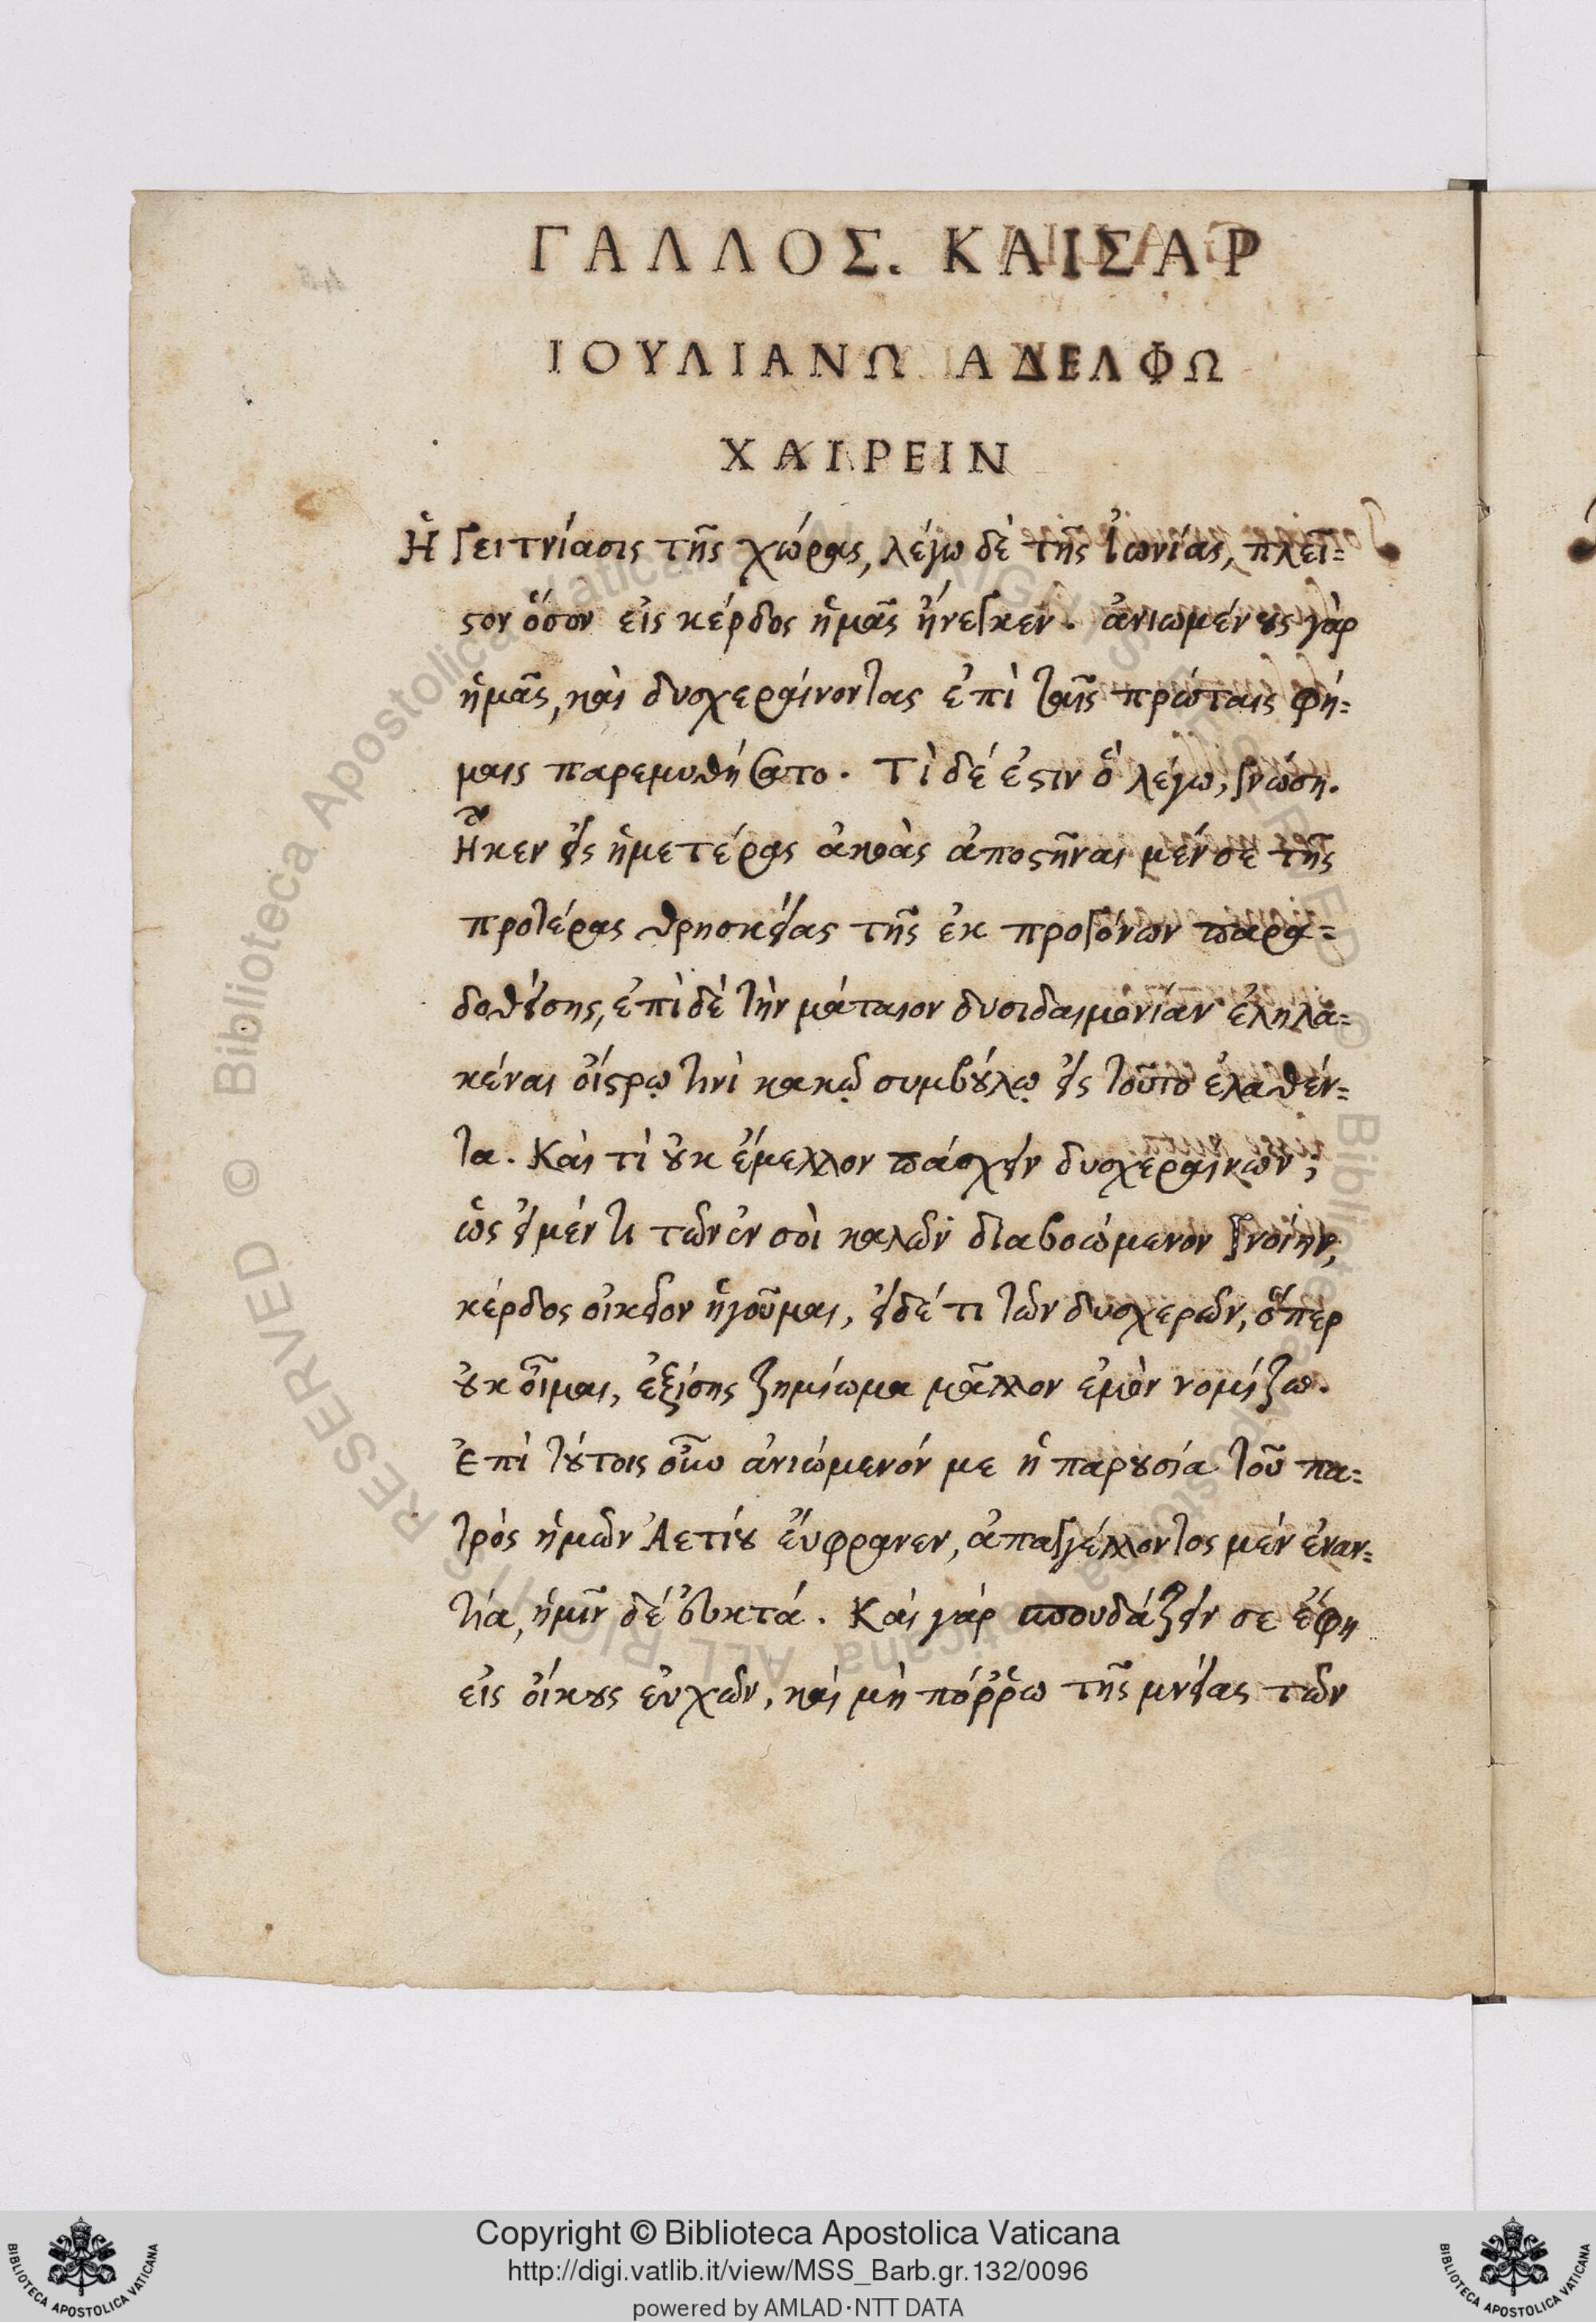 ΓΑΛΛΟΣ. ΚΑΙΣΑΡ
ΙΟΥΛΙΑΝΩ ΑΔΕΛΦΩ
ΧΑΙΡΕΙΝ
Ἡ γειτνίασις τῆς χώρας, λέγω δὲ τῆς Ἰωνίας, πλεῖ=
ϛον ὅσον εἰς κέρδος ἡμᾶς ἤνεγκεν. ἀνιωμένȣς γὰρ
ἡμᾶς, καὶ δυσχεραίνοντας ἐπὶ ταῖς πρώταις φή=
μαις παρεμυθήσατο. Τὶ δέ ἐϛιν ὃ λέγω, γνώση.
Ἧκεν εἰς ἡμετέρας ἀκοὰς ἀποϛῆναι μέν σε τῆς
προτέρας θρησκείας τῆς ἐκ προγόνων παρα=
δοθείσης, ἐπὶ δὲ τὴν μάταιον δυσιδαιμονίαν ἐληλα=
κέναι οἴϛρῳ τινὶ κακῷ συμβȣ́λῳ εἰς τοῦτο ἐλαθέν=
τα. Καὶ τὶ ȣκ ἔμελλον πάσχειν δυσχεραίνων;
ὡς εἰ μέν τι τῶν ἐν σοὶ καλῶν διαβοώμενον γνοίην,
κέρδος οἰκεῖον ἡγοῦμαι, εἰ δέ τι τῶν δυσχερῶν, ὅπερ
ȣκ οἶμαι, ἐξίσης ζημίωμα μᾶλλον ἐμὸν νομίζω.
Ἐπὶ τȣ́τοις οὖν ἀνιώμενόν με ἡ παρȣσία τοῦ πα=
τρὸς ἡμῶν Ἀετίȣ εὔφρανεν, ἀπαγγέλλοντος μὲν ἐναν=
τία, ἡμῖν δὲ εὐκτά. Καὶ γὰρ σπουδάζειν σε ἔφη
εἰς οἴκȣς εὐχῶν, καὶ μὴ πόῤῥω τῆς μνείας τῶν
Copyright © Biblioteca Apostolica Vaticana
http://digi.vatlib.it/view/MSS_Barb.gr.132/0096
powered by AMLAD·NTT DATA
BIBLIOTECA APOSTOLICA VATICANA
BIBLIOTECA APOSTOLICA VATICANA